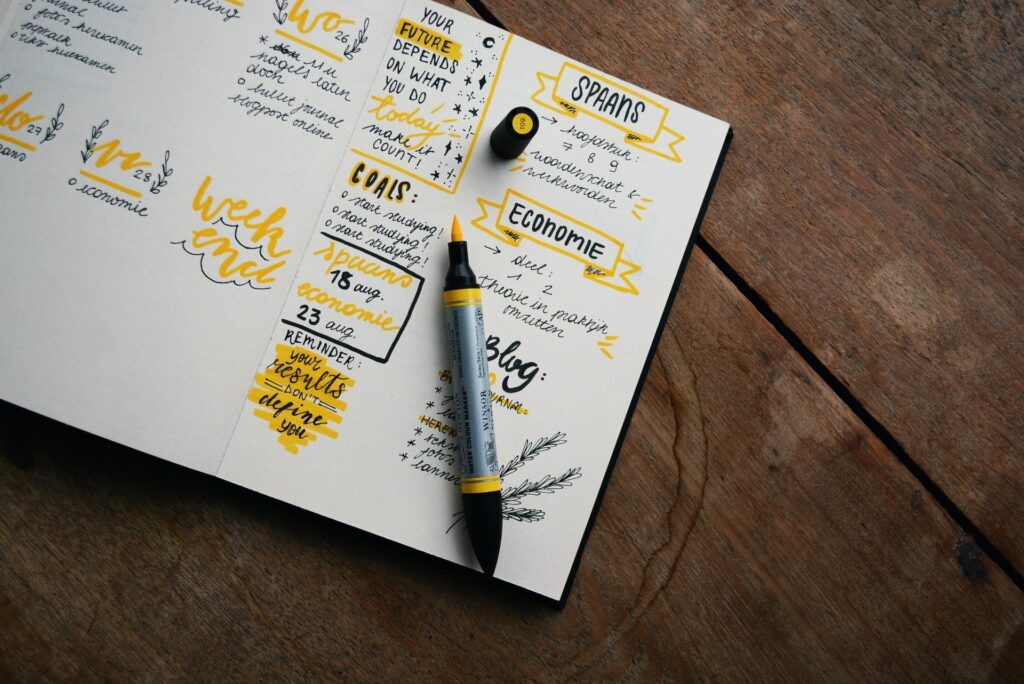 journal
o foto's herexamen
o herexamen
wo 26
nagels laten
doen
o bullet journal
blogpost online
do 27
vr 28
o economie
week
end
YOUR
FUTURE
DEPENDS
ON WHAT
YOU DO
today
make it
COUNT!
GOALS:
o start studying!
o start studying!
o start studying!
spaans
18 aug.
economie
23 aug.
REMINDER:
your
results
DON'T
define
you
109
SPAANS
→ hoofdstuk:
7 8 9
woordenschat &
werkwoorden
ECONOMIE
→ deel:
1 2
theorie in praktijk
omzetten
Blog:
WATER COLOUR MARKER
WINSOR